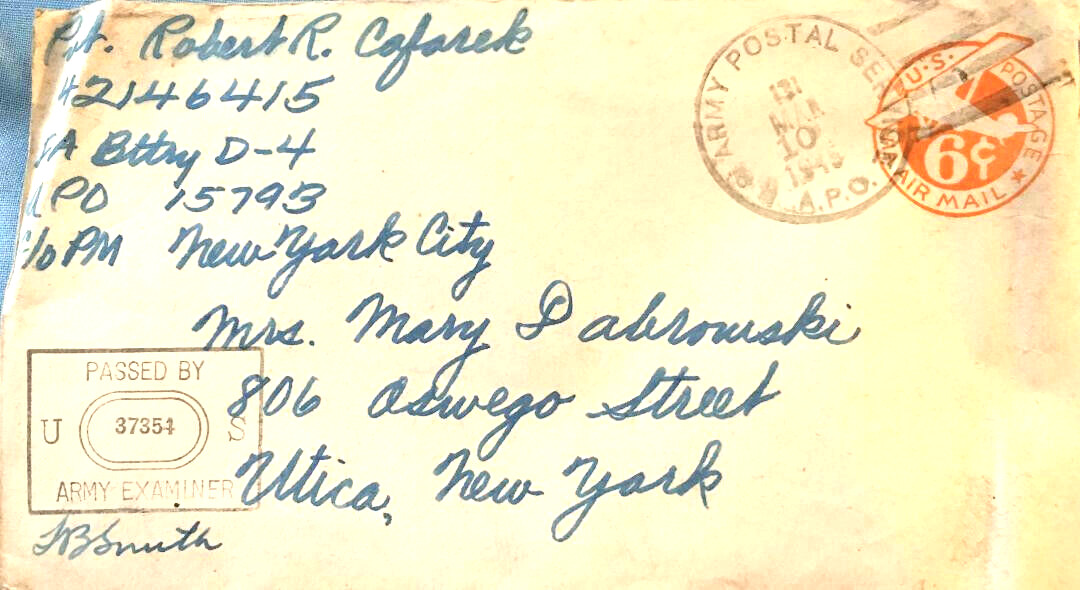 Pvt. Robert R. Cafarek
42146415
Bttry D-4
APO 15793
c/o PM New York City
ARMY POSTAL SER
MAR
10
A.P.O.
U.S. POSTAGE
6¢
VIA AIR MAIL
Mrs. Mary Dabrowski
806 Oswego Street
Utica, New York
PASSED BY
U 37354 S
ARMY EXAMINER
Smith